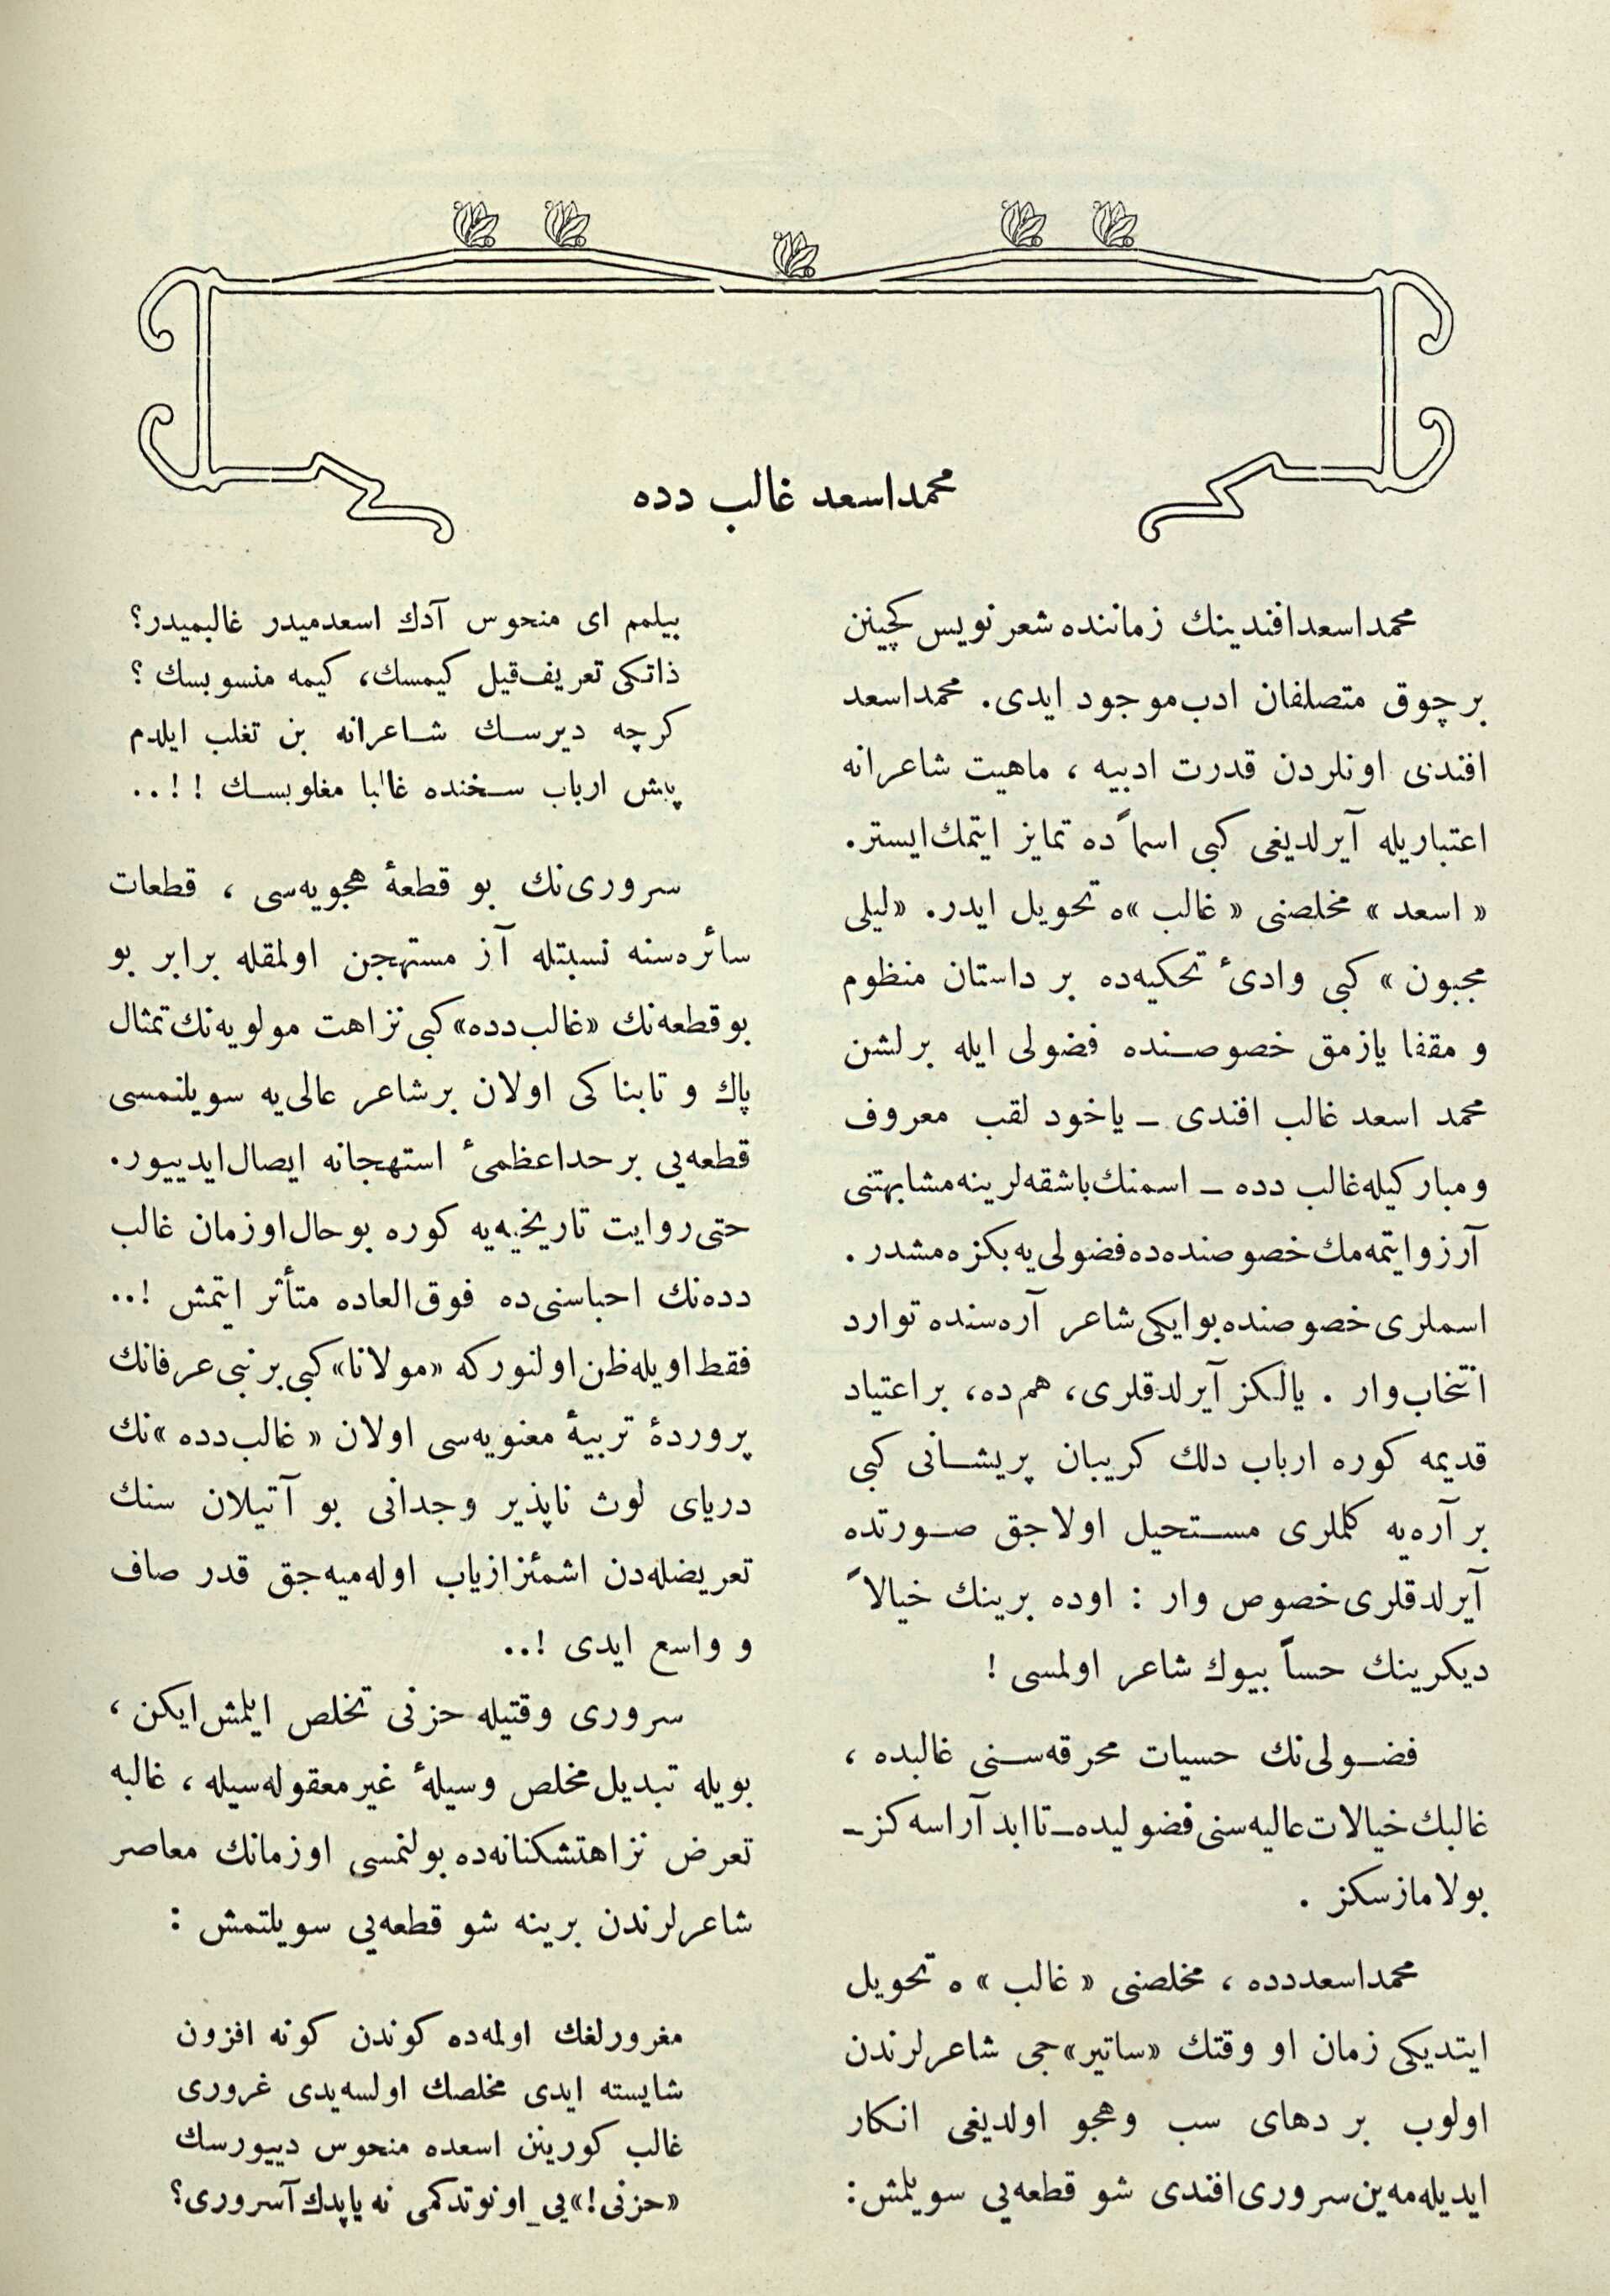 محمداسعد غالب دده
محمداسعدافندینك زماننده شعرنویس كچینن
برچوق متصلفان ادب‌موجود ایدی. محمداسعد
افندی اونلردن قدرت ادبیه ، ماهیت شاعرانه
اعتباریله آیرلدیغی كبی اسماً ده تمایز ایتمك‌ایستر.
« اسعد » مخلصنی « غالب »ه تحویل ایدر. «لیلی
مجنون » كبی وادیٔ تحكیه‌ده بر داستان منظوم
و مقفا یازمق خصوصنده فضولی ایله برلشن
محمد اسعد غالب افندی ـ یاخود لقب معروف
ومباركیله‌غالب دده ـ اسمنك‌باشقه‌لرینه‌مشابهتنی
آرزوایتمه‌مك‌خصوصنده‌ده‌فضولی‌یه‌بكزه‌مشدر .
اسملری‌خصوصنده‌بوایكی‌شاعر آره‌سنده توارد
انتخاب‌وار . یالكز آیرلدقلری، هم‌ده، براعتیاد
قدیمه كوره ارباب دلك كریبان پریشانی كبی
بر آره‌یه كلملری مستحیل اولاجق صورتده
آیرلدقلری‌خصوص وار : اوده برینك خیالاً
دیكرینك حساً بیوك شاعر اولمسی !
فضولی‌نك حسیات محرقه‌سنی غالبده ،
غالبك‌خیالات‌عالیه‌سنی‌فضولیده‌ـ‌تاابد آراسه‌كزـ
بولامازسكز .
محمداسعددده ، مخلصنی « غالب » ه تحویل
ایتدیكی زمان او وقتك «ساتیر»جی شاعرلرندن
اولوب بر دهای سب وهجو اولدیغی انكار
ایدیله‌مه‌ین‌سروری‌افندی شو قطعه‌یی سویلمش:
بیلمم ای منحوس آدك اسعدمیدر غالبمیدر؟
ذاتكی تعریف‌قیل كیمسك، كیمه منسوبسك ؟
كرچه دیرسك شاعرانه بن تغلب ایلدم
پیش ارباب سخنده غالبا مغلوبسك ! !..
سروری‌نك بو قطعهٔ هجویه‌سی ، قطعات
سائره‌سنه نسبتله آز مستهجن اولمقله برابر بو
بوقطعه‌نك «غالب‌دده» كبی نزاهت مولویه‌نك‌تمثال
پاك و تابناكی اولان برشاعر عالی‌یه سویلنمسی
قطعه‌یی برحداعظمیٔ استهجانه ایصال‌ایدییور.
حتی‌روایت تاریخیه‌یه كوره بوحال‌اوزمان غالب
دده‌نك احباسنی‌ده فوق‌العاده متأثر ایتمش !..
فقط‌اویله‌ظن‌اولنوركه «مولانا» كبی‌برنبی‌عرفانك
پروردهٔ تربیهٔ معنویه‌سی اولان « غالب‌دده »نك
دریای لوث ناپذیر وجدانی بو آتیلان سنك
تعریضله‌دن اشمئزازیاب اوله‌میه‌جق قدر صاف
و واسع ایدی !..
سروری وقتیله حزنی تخلص ایلمش‌ایكن ،
بویله تبدیل‌مخلص وسیلهٔ غیرمعقوله‌سیله ، غالبه
تعرض نزاهتشكنانه‌ده بولنمسی اوزمانك معاصر
شاعرلرندن برینه شو قطعه‌یی سویلتمش :
مغرورلغك اولمه‌ده كوندن كونه افزون
شایسته ایدی مخلصك اولسه‌یدی غروری
غالب كورینن اسعده منحوس دییورسك
«حزنی!»یی_اونوتدكمی نه یاپدك‌آسروری؟